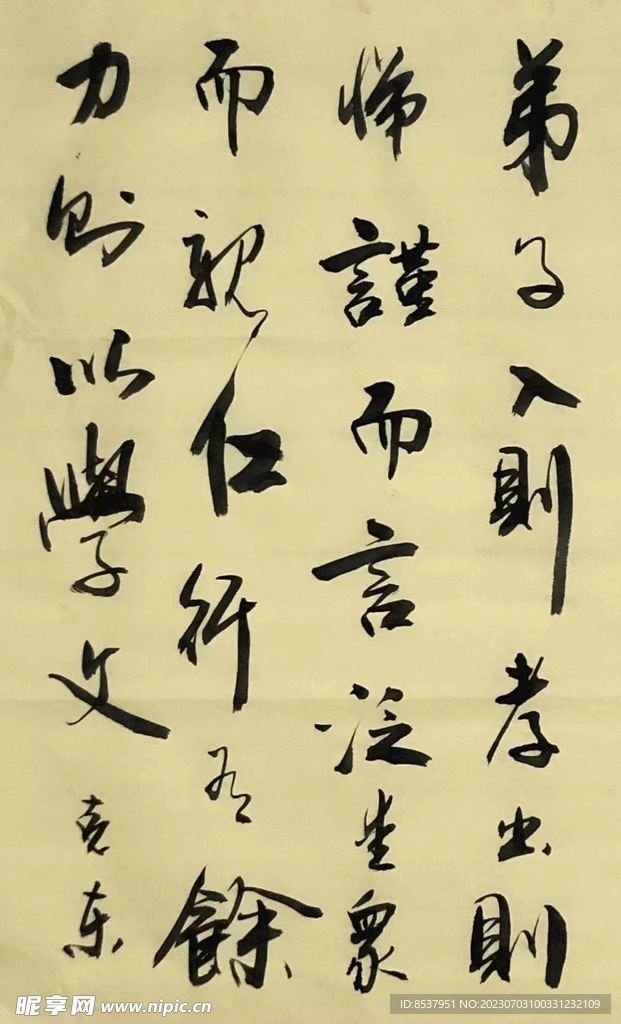 弟子入則孝出則
悌謹而言泛愛眾
而親仁行有餘
力則以學文
克东
昵享网 www.nipic.cn
ID:8537951 NO:20230703100331232109